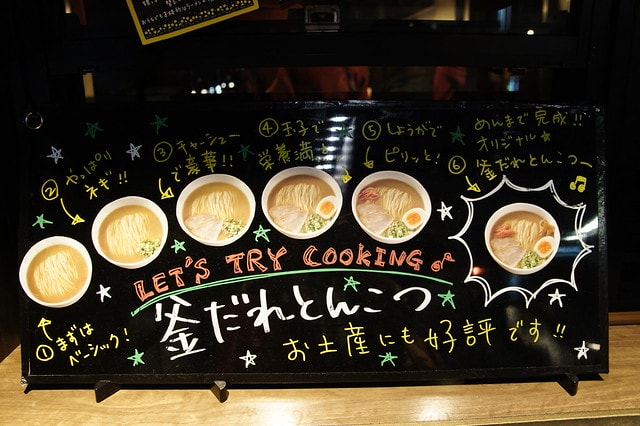 ① まずは
ベーシック!
② やっぱり
ネギ!!
③ チャーシュー
で豪華!!
④ 玉子で
栄養満点
⑤ しょうがで
ピリッと!
めんまで完成!!
オリジナル★
⑥ 釜だれとんこつ〜♫
LET'S TRY COOKING♂
釜だれとんこつ
お土産にも好評です!!